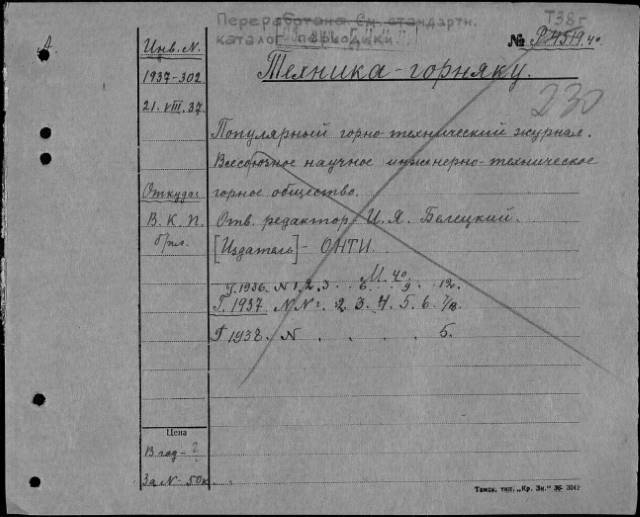 Переработана См. стандартн.
каталог периодики
Т38г
№ 40
Инв. N.
Техника-горняку.
1937-302
230
21. VIII. 37.
Популярный горно-технический журнал.
Всесоюзное научное инженерно-техническое
Откуда горное общество.
В. К. П. Отв. редактор И. Я.
[Издатель] - ОНТИ
М. 40
Г. 1936. N 1, 2, 3. 6. 9. 12.
Г. 1937 NN: 2 3. 4. 5. 6. 7/8.
Г 1938. N . . . . . 5.
Цена
В год -
За N - 50к.
Тамб. тип. „Кр. Зн."